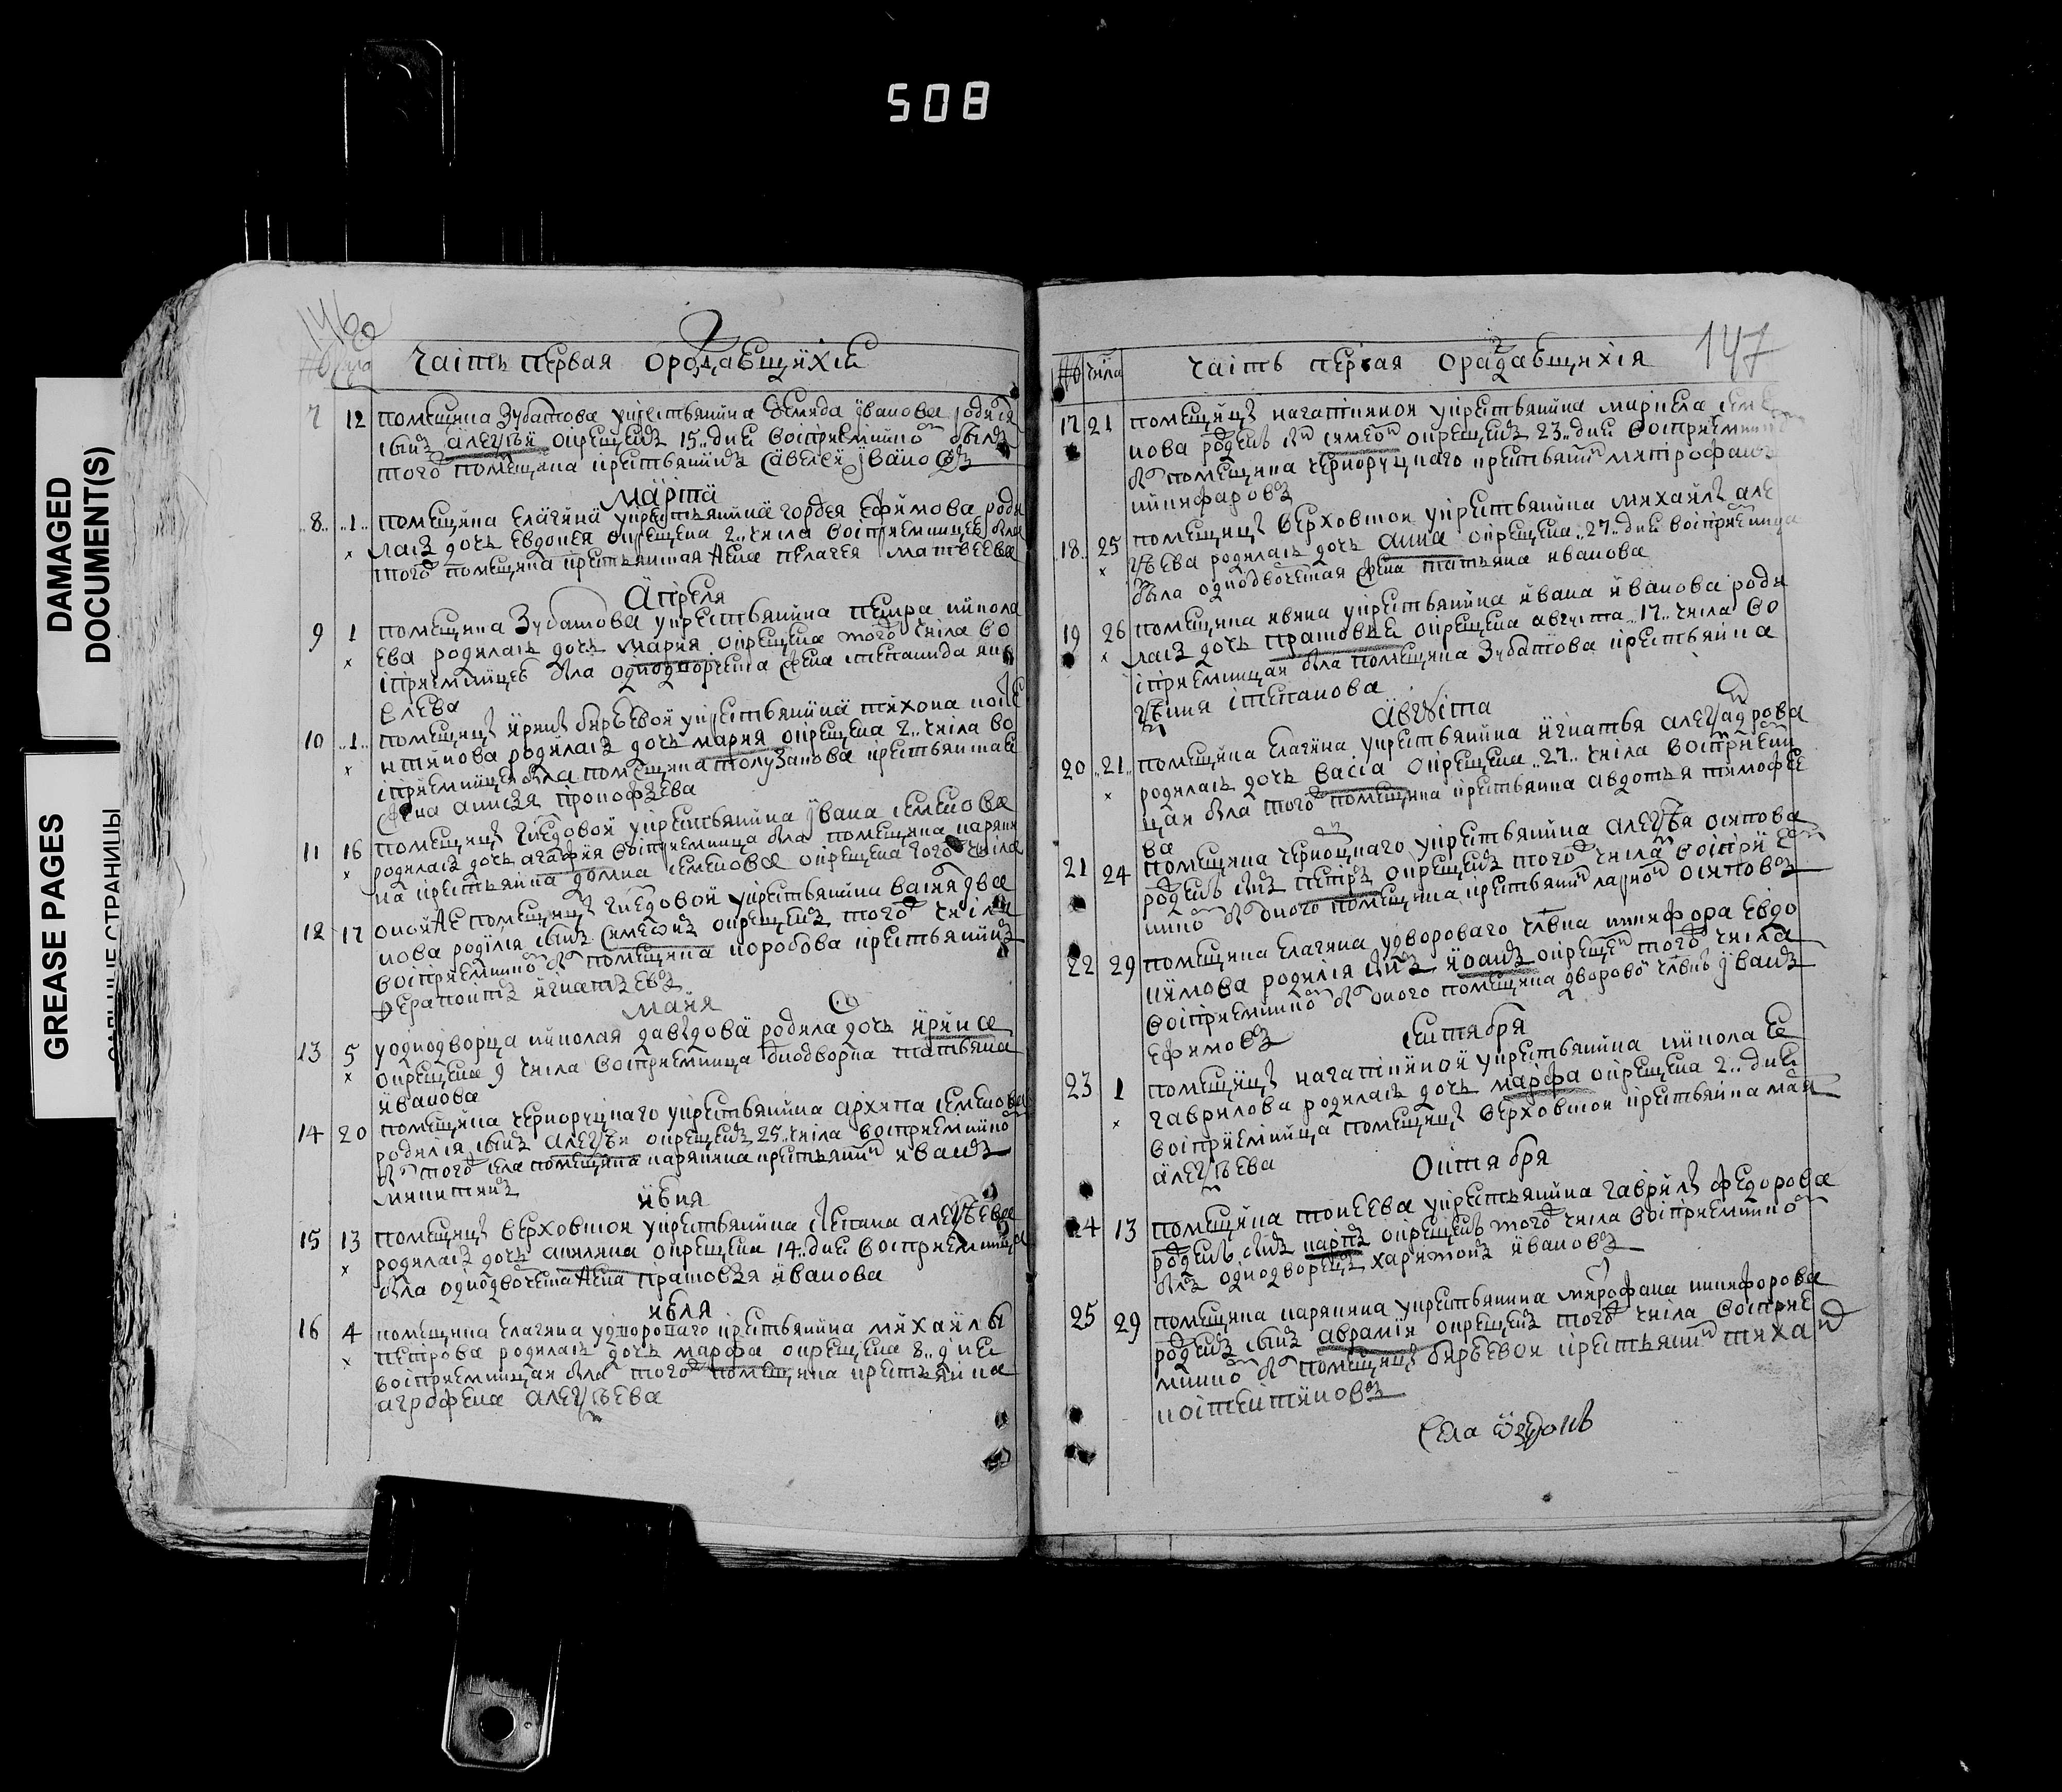 508
DAMAGED
DOCUMENT(S)
GREASE PAGES
СТРАНИЦЫ
146
часть первая ораждавщихся
7 12 помещика Зубатова укрестьянина Иванова родися
сынъ алеѯѣй окрещенъ 15 дня восприемникомъ былъ
того помещика крестьянинъ савелей Ивановъ
марта
8 1 помещика Елагина укрестьянина гордея Ефимова роди
лась дочь Евдокея окрещена 2 числа восприемницею была
того помещика крестьянская жена пелагея матвеева
Апреля
9 1 помещика Зубатова укрестьянина петра никола
ева родилась дочь мария окрещена того числа во
сприемницею была однодворческа жена степанида як
влева
10 1 помещицы бырѣевой укрестьянина тихона косте
нтинова родилась дочь мария окрещена 2 числа во
сприемницею была помещика толузакова крестьянская
жена анисья прокофьева
11 16 помещицы гнедовой укрестьянина Ивана семенова
родилась дочь агафия восприемница была помещика карякина
на крестьянина домна семенова окрещена того числа
12 17 оной же помещицы гнедовой укрестьянина василья Ива
нова родился сынъ симеонъ окрещенъ того числа
восприемникомъ былъ помещика коробова крестьянинъ
ферапонтъ игнатьевъ
маия
13 5 уоднодворца николая давыдова родила дочь ирина
окрещена 9 числа восприемница однодворка татьяна
иванова
14 20 помещика черноруцкаго укрестьянина архипа семенова
родился сынъ алеѯѣи окрещенъ 25 числа восприемникомъ
былъ того села помещика карякина крестьянинъ иванъ
никитинъ
июня
15 13 помещицы верховской укрестьянина степана алеѯѣева
родилась дочь акилина окрещена 14 дня восприемница
была однодворческа жена прасковья иванова
июля
16 4 помещика елагина удвороваго крестьянина михаилы
петрова родилась дочь марфа окрещена 8 дня
восприемницая была того помещика крестьянина
агрофена алеѯѣева
147
№ числа часть первая ораждавщихся
17 21 помещицы нагаткиной укрестьянина маркела семе
нова роженъ сынъ симеонъ окрещенъ 23 дня восприемник
былъ помещика черноруцкаго крестьянинъ митрофанъ
никифаровъ
18 25 помещицы верховской укрестьянина михайлы але
ѯѣева родилась дочь анна окрещена 27 дня восприемница
была однодворческая жена татьяна иванова
19 26 помещика укрестьянина ивана иванова роди
лась дочь прасковея окрещена августа 17 числа во
сприемницая была помещика Зубатова крестьянина
ѯения степанова
Августа
20 21 помещика елагина укрестьянина игнатья алеѯандрова
родилась дочь васса окрещена 27 числа восприемни
цая была того помещика крестьянина авдотья тимофее
ва
21 24 помещика черноцкаго укрестьянина алеѯѣя осипова
роженъ сынъ петръ окрещенъ того числа восприем
никомъ былъ оного помещика крестьянинъ ларионъ осиповъ
22 29 помещика елагина удвороваго члвка никифора евдо
кимова родился сынъ иоанъ окрещен того числа
восприемникомъ былъ оного помещика дворовой члвкъ Иванъ
ефимовъ
сентября
23 1 помещицы нагаткиной укрестьянина никола е
гаврилова родилась дочь марфа окрещена 2 дня
восприемница помещицы верховской крестьянина мая
алеѯѣева
октября
24 13 помещика мосеева укрестьянина гаврилы федорова
роженъ сынъ карпъ окрещенъ того числа восприемникомъ
былъ однодворецъ харитонъ ивановъ
25 29 помещика карякина укрестьянина митрофана никифорова
роженъ сынъ аврамии окрещенъ того числа восприе
мникомъ былъ помещицы бырѣевой крестьянинъ тихан
костентиновъ
Села